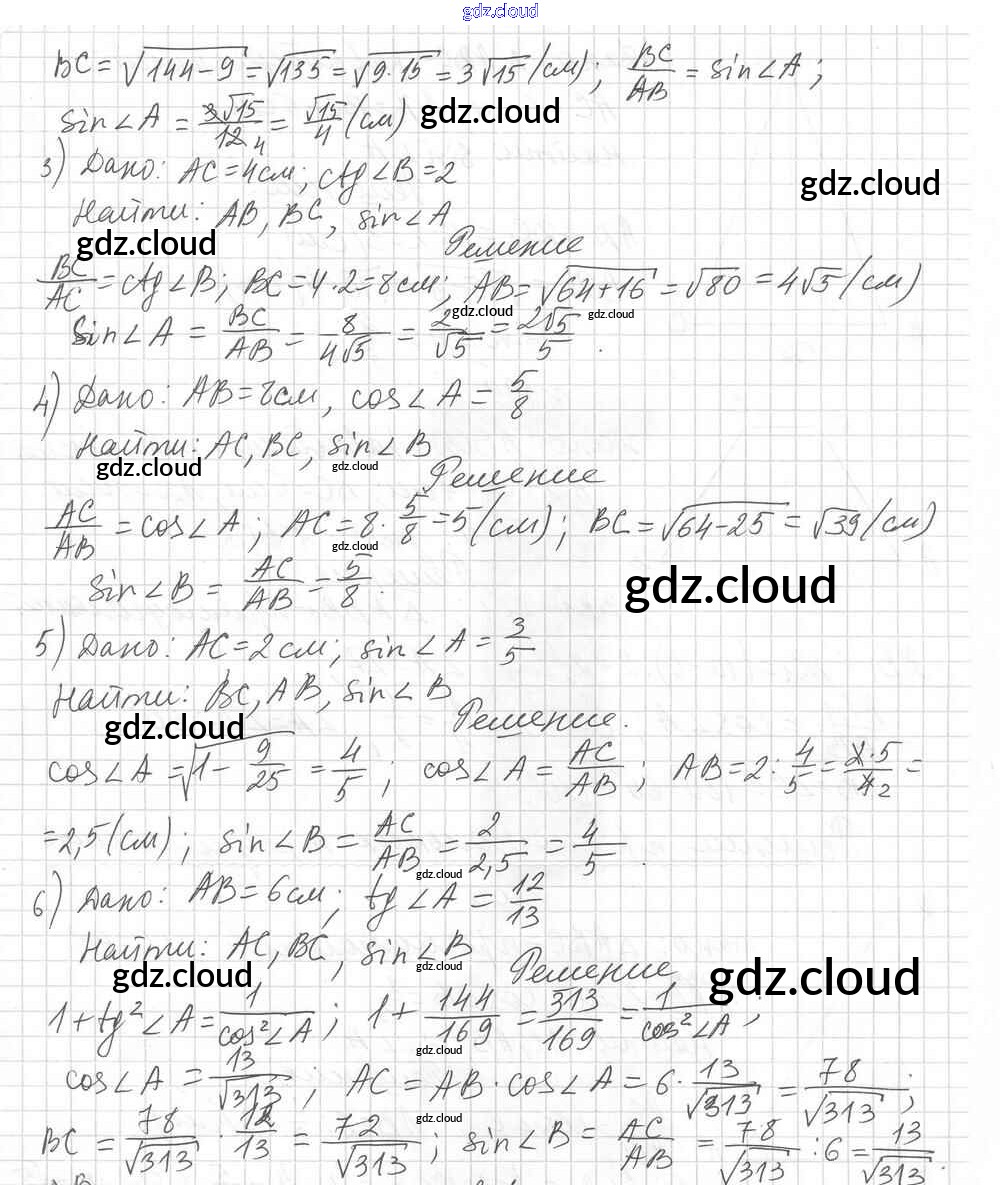 gdz.cloud
BC = √(144-9) = √135 = √(9·15) = 3√15 (см); BC/AB = sin∠A;
sin∠A = 3√15/12 4 = √15/4 (см) gdz.cloud
3) Дано: AC=4см; ctg∠B=2
gdz.cloud
Найти: AB, BC, sin∠A
gdz.cloud Решение
BC/AC = ctg∠B; BC=4·2=8см; AB=√(64+16) = √80 = 4√5 (см)
gdz.cloud gdz.cloud
Sin∠A = BC/AB = 8/4√5 = 2/√5 = 2√5/5.
4) Дано: AB=8см, cos∠A = 5/8
Найти: AC, BC, sin∠B
gdz.cloud gdz.cloud Решение
AC/AB = cos∠A; AC=8·5/8=5(см); BC=√(64-25) = √39(см)
gdz.cloud
sin∠B = AC/AB = 5/8. gdz.cloud
5) Дано: AC=2см; sin∠A = 3/5
Найти: BC, AB, sin∠B
gdz.cloud Решение.
cos∠A = √(1-9/25) = 4/5; cos∠A = AC/AB; AB=2:4/5 = 2·5/4 2 =
=2,5(см); sin∠B = AC/AB = 2/2,5 = 4/5.
gdz.cloud
6) Дано: AB=6см; tg∠A = 12/13
Найти: AC, BC, sin∠B
gdz.cloud gdz.cloud Решение gdz.cloud
1+tg²∠A = 1/cos²∠A; 1+144/169 = 313/169 = 1/cos²∠A;
gdz.cloud
cos∠A = 13/√313; AC = AB·cos∠A = 6·13/√313 = 78/√313;
gdz.cloud
BC = 78/√313 · 12/13 = 72/√313; sin∠B = AC/AB = 78/√313 : 6 = 13/√313.